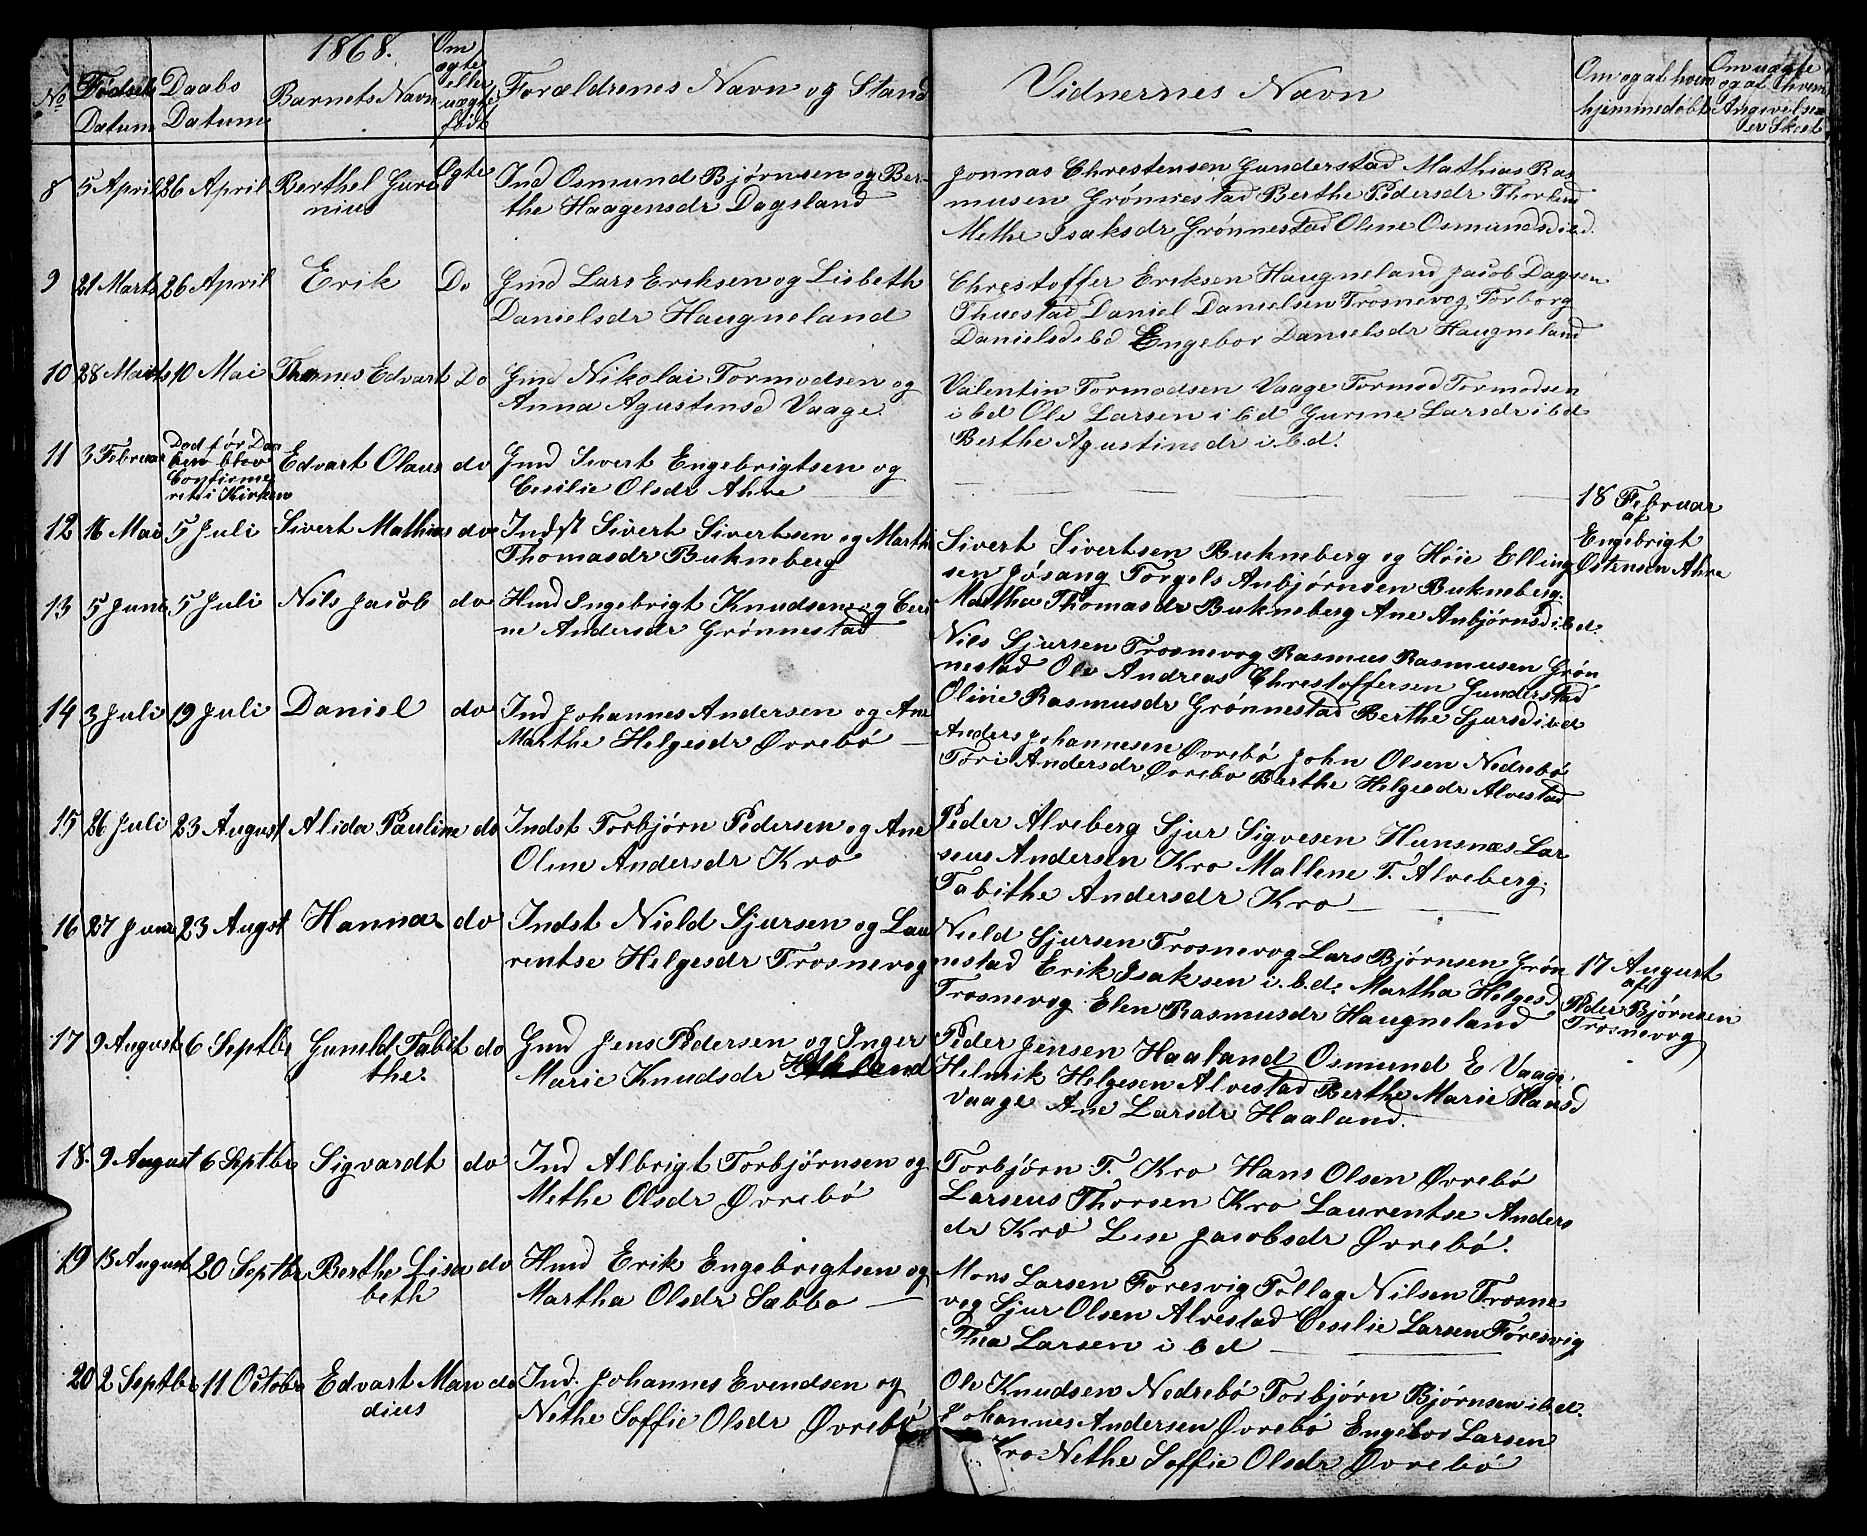 1868.
No
Fødsels Datum
Daabs Datum
Barnets Navn
Om ægte eller uægte født
Forældrenes Navn og Stand
Vidnernes Navn
Om og af hvem hjemmedøbt
Om uægte og af hvem Angivelsen er Skeet
8 5 April 26 April Berthel Guri Ægte Ind Osmund Bjørnsen og Ber-
nius the Haagensdr Dagsland
Jonnas Chrestensen Gunderstad Mathias Ras
musen Grønnestad Berthe Pedersdr
Methe Isaksdr Grønnestad Oline Osmundsd ibd.
9 21 Marts 26 April Erik Do Gmd Lars Eriksen og Lisbeth
Danielsdr Haugneland
Chrestoffer Eriksen Haugneland Jacob Dagsen
Thuestad Daniel Danielsen Trosnevog Torborg
Danielsd ibd Engebor Danielsdr Haugneland
10 28 Marts 10 Mai Thomes Edvart Do Gmd Nikolai Tormodsen og
Anna Agustensd Vaage
Valentin Tormodsen Vaage Tormod Tormodsen
i bd Ole Larsen i bd Gurine Larsdr i bd
Berthe Agustinsdr i.b.d.
11 3 Februar Død før Daa Edvart Olaus do Gmd Sivert Engebrigtsen og
ben blev Cecilie Olsdr Ahre
Confirme
ret i Kirken
18 Februar
af
Engebrigt
Østensen Ahre
12 16 Mai 5 Juli Sivert Mathias do Indst Sivert Sivertsen og Marthe
Thomasdr Bukneberg
Sivert Sivertsen Bukneberg og Høie Elling
sen Jøsang Torgels Anbjørnsen Bukneberg.
Martha Thomasdr Bukneberg Ane Anbjørnsd i.b.d.
13 5 Juni 5 Juli Nils Jacob do Hmd Ingebrigt Knudsen og Ceri
ne Andersdr Grønnestad
Nils Sjursen Trosnevog Rasmus Rasmusen Grøn
nestad Ole Andreas Chrestoffersen Gunderstad
Oline Rasmusdr Grønnestad Berthe Sjursd i.b.d
14 3 Juli 19 Juli Daniel do Ind Johannes Andersen og Ane
Marthe Helgesdr Øvrebø
Anders Johannesen Øvrebø John Olsen Nedrebø
Tori Andersdr Øvrebø Berthe Helgesdr Alvestad
15 26 Juli 23 August Alida Pauline do Indst Torbjørn Pedersen og Ane
Oline Andersdr Kro
Peder Alveberg Sjur Sigvesen Hunsnæs Lar
seus Andersen Kro Mallene T. Alveberg.
Tabithe Andersdr Kro
16 27 Juni 23 Augst Hanna do Indst Nield Sjursen og Lau
rentse Helgesdr Trosnevog
Nield Sjursen Trosnevog Lars Bjørnsen Grøn
nestad Erik Isaksen i.b.d. Martha Helgesd
Trosnevog Elen Rasmusdr Haugneland
17 August
af
Peder Bjørnsen
Trosnevog
17 9 August 6 Septbr Guneld Tabit do Gmd Jens Pedersen og Inger
the. Marie Knudsdr
Peder Jensen Haaland Osmund E Vaage.
Helmik Helgesen Alvestad Berthe Marie Hansd
Vaage Ane Larsdr Haaland.
18. 9 August 6 Septbr Sigvardt do Ind Albrigt Torbjørnsen og
Methe Olsdr Øvrebø
Torbjørn T. Kro Hans Olsen Øvrebø
Larseus Thorsen Kro Laurentse Anders
dr Kro Lise Jacobsdr Øvrebø.
19 13 August 20 Septbr Berthe Lisa do Hmd Erik Engebrigtsen og
beth Martha Olsdr Sæbbø
Mons Larsen Føresvig Tollag Nilsen Trosne
vog Sjur Olsen Alvestad Cecelie Larsen Føresvig
Thea Larsen i b d
20 2 Septbr 11 Octobr Edvart Man do Ind. Johannes Evendsen og
dius Nethe Soffie Olsdr Øvrebø
Ole Knudsen Nedrebø Torbjørn Bjørnsen i.b.d.
Johannes Andersen Øvrebø Engebor Larsen
Kro Nethe Soffie Olsdr Øvrebø